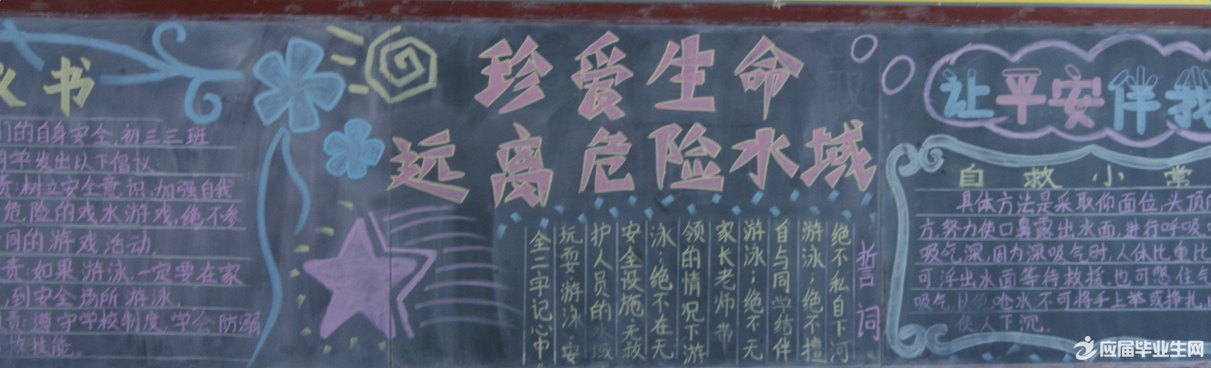 议书
们的自身安全,初三三班
同学发出以下倡议:
责:树立安全意识,加强自我
危险的戏水游戏,绝不参
同的游戏活动.
责:如果游泳,一定要在家
,到安全场所游泳.
责:遵守学校制度,学会防溺
救技能.
珍爱生命
远离危险水域
誓词
绝不私自下河
游泳;绝不擅
自与同学结伴
游泳;绝不无
家长老师带
领的情况下游
泳;绝不在无
安全设施无救
护人员的水域
玩耍游泳,安
全二字记心中
让平安伴我
自救小常
具体方法是采取仰面位,头顶向
方,努力使口鼻露出水面,进行呼吸
吸气深,因为深吸气时,人体比重比
可浮出水面等待救援,也可憋住气
吸气以免呛水不可将手上举或挣扎,
使人下沉.
应届毕业生网